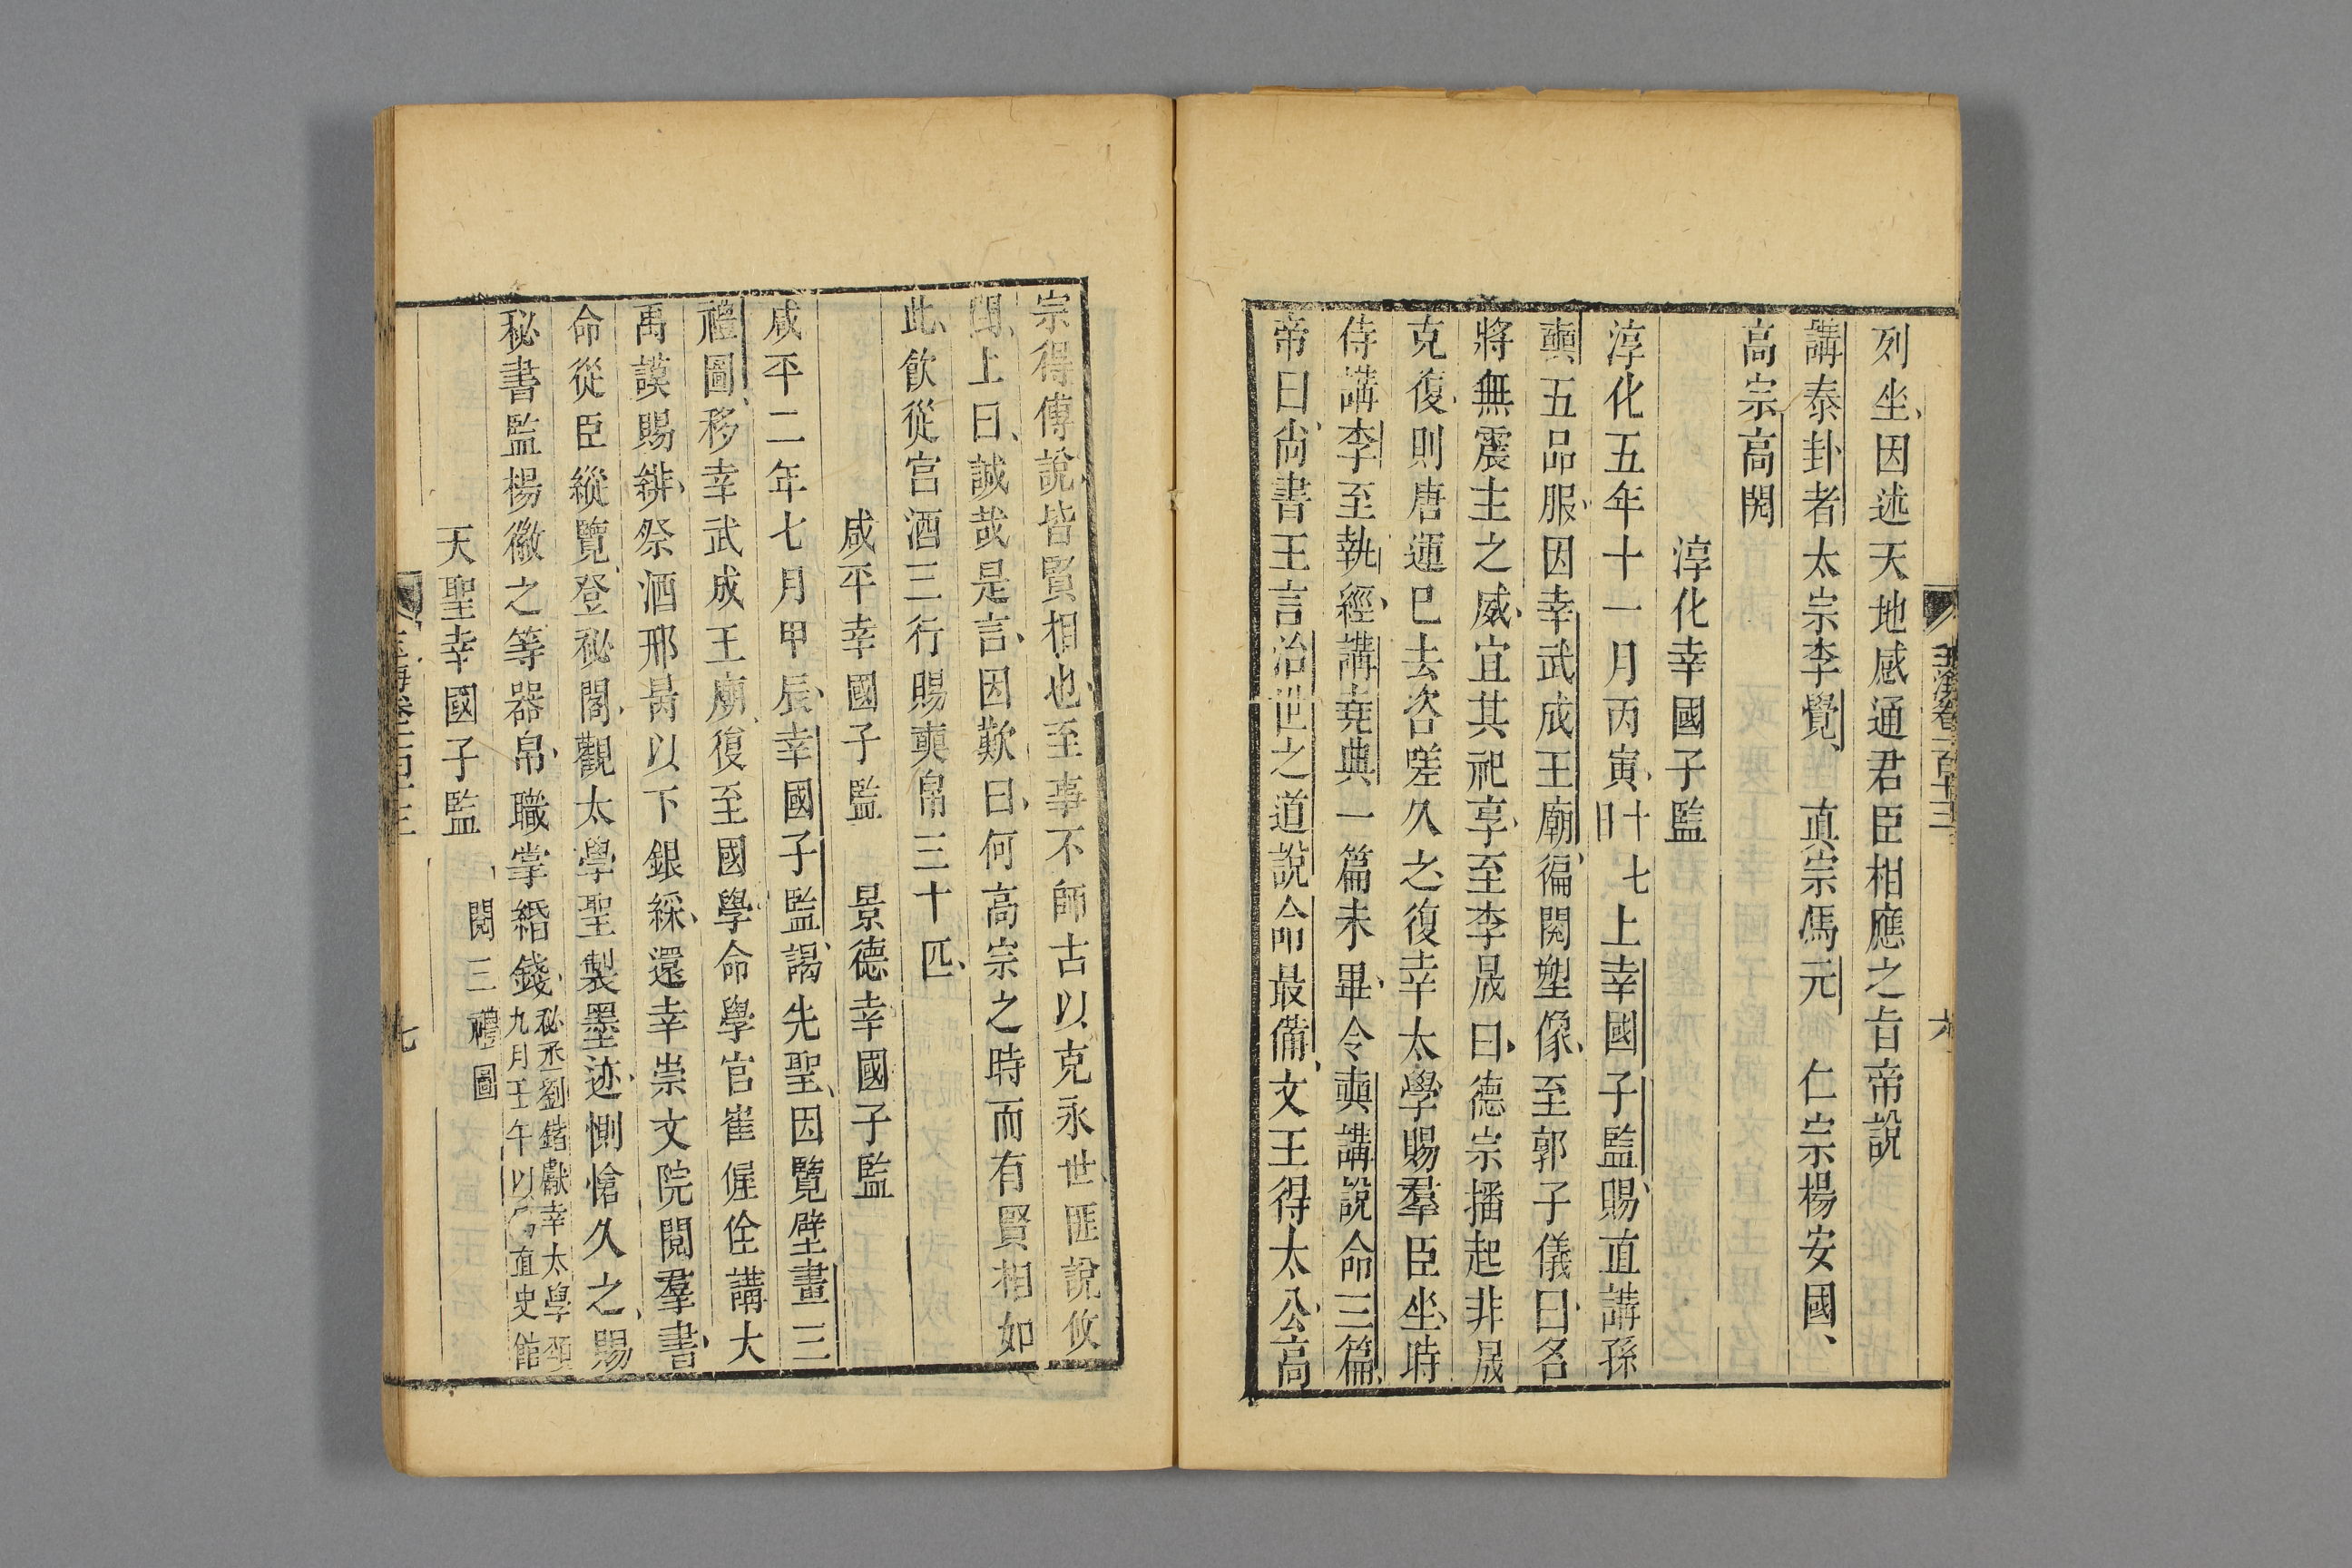 玉海卷一百十三
六
列坐、因述天地感通君臣相應之旨帝說
講泰卦者太宗李覺、真宗馮元、仁宗楊安國、
高宗高閌
淳化幸國子監
淳化五年十一月丙寅、十七日上幸國子監、賜直講孫
奭五品服、因幸武成王廟、徧閱塑像、至郭子儀、曰、名
將無震主之威、宜其祀享、至李晟、曰、德宗播起非晟
克復、則唐運已去咨嗟久之、復幸太學賜羣臣坐、時
侍講李至執經、講堯典一篇未畢、令奭講說命三篇、
帝曰、尚書王言治世之道說命最備、文王得太公、高
宗得傅說、皆賢相也、至事不師古以克永世、匪說攸
聞、上曰、誠哉是言、因歎曰、何高宗之時而有賢相如
此、飲從官酒三行賜奭帛三十匹、
咸平幸國子監　景德幸國子監
咸平二年七月甲辰、幸國子監、謁先聖、因覽壁畫三
禮圖、移幸武成王廟、復至國學、命學官崔偓佺講大
禹謨賜緋、祭酒邢昺以下銀綵、還幸崇文院閱羣書、
命從臣縱覽、登秘閣、觀太學聖製墨迹、惻愴久之、賜
秘書監楊徽之等器帛、職掌緡錢、秘丞劉鍇獻幸太學頌
九月壬午以直史館
天聖幸國子監　閱三禮圖
玉海卷一百十三
七